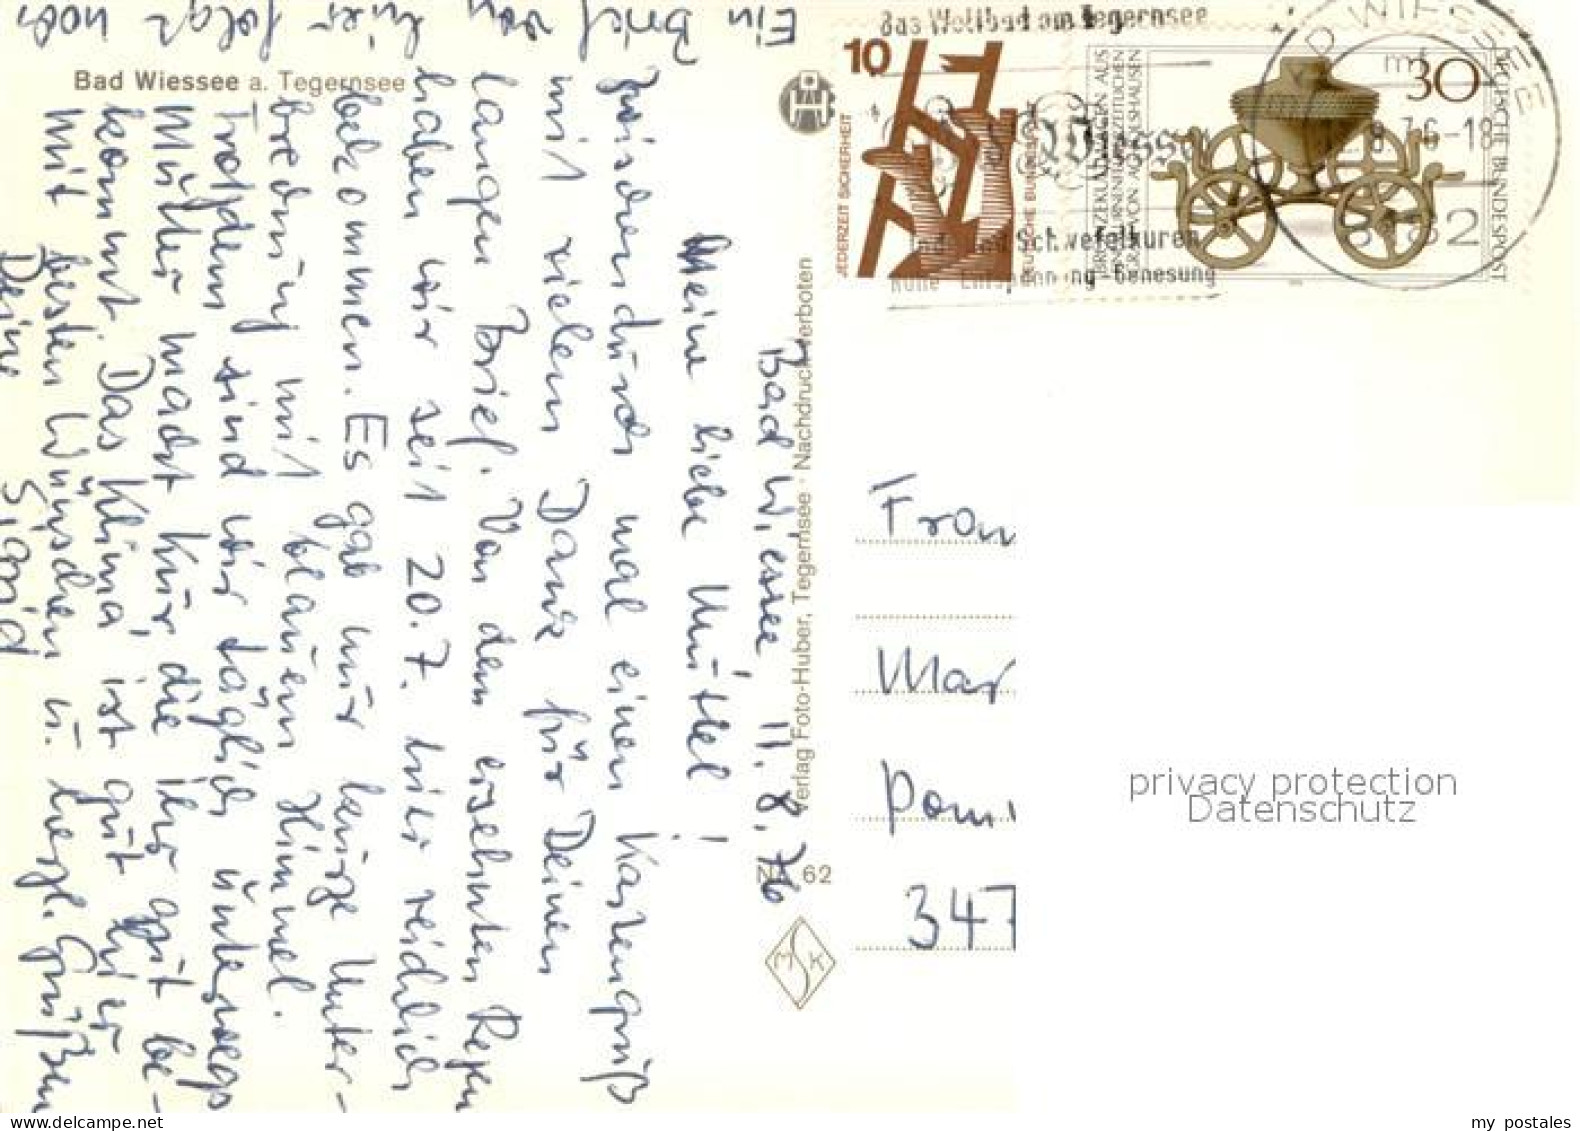 Bad Wiessee a. Tegernsee
Bad Wiessee 11.8.76
Meine liebe Muttel!
zwischendurch mal einen Kartengruß
mit vielem Dank für Deinen
langen Brief. Von dem ersehnten Regen
haben wir seit 20.7. hier reichlich
bekommen. Es gab nur kurze Unter-
brechung mit blauem Himmel.
Trotzdem sind wir täglich unterwegs
Mutter macht Kur die ihr gut be-
kommt. Das Klima ist gut hier
mit besten Wünschen u. herzl. Grüßen
Deine Sigrid
Ein Brief von hier folgt noch
Verlag Foto-Huber, Tegernsee · Nachdruck verboten
62
MSK
das Weltbad am Tegernsee
Jod- und Schwefelkuren
Ruhe - Entspannung - Genesung
BAD WIESSEE
-18
10
JEDERZEIT SICHERHEIT
DEUTSCHE BUNDESPOST
30
DEUTSCHE BUNDESPOST
BRONZEKULTWAGEN AUS
EINEM URNENFELDERZEITLICHEN
GRAB VON ACHOLSHAUSEN
Frau
Mar
347
privacy protection
Datenschutz
www.delcampe.net
my_postales